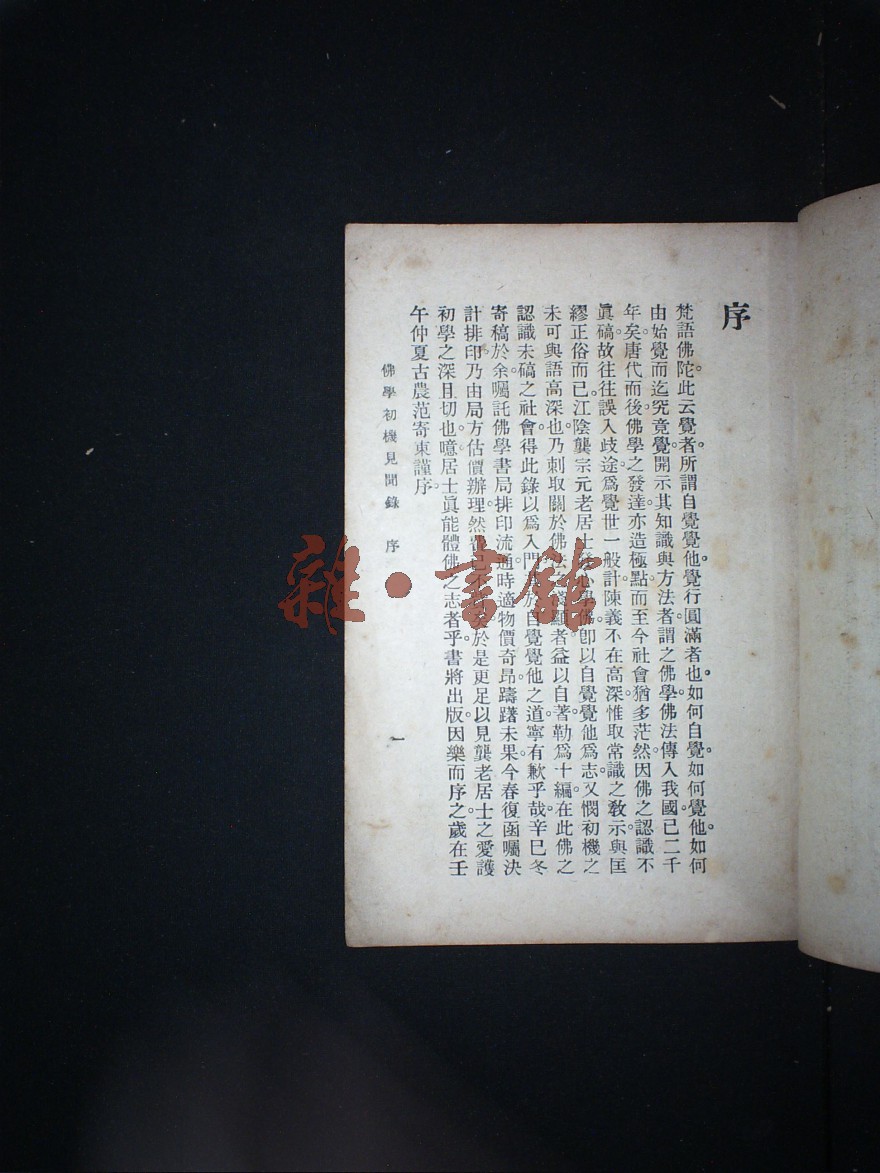 序
梵語佛陀。此云覺者。所謂自覺覺他。覺行圓滿者也。如何自覺。如何覺他。如何
由始覺而迄究竟覺。開示其知識與方法者。謂之佛學。佛法傳入我國。已二千
年矣。唐代而後。佛學之發達。亦造極點。而至今社會。猶多茫然。因佛之認識不
眞碻。故往往誤入歧途。爲覺世一般計。陳義不在高深。惟取常識之教示。與匡
繆正俗而已。江陰龔宗元老居士。發心學佛。卽以自覺覺他爲志。又憫初機之
未可與語高深也。乃刺取關於佛法 顯者。益以自著。勒爲十編。在此佛之
認識未碻之社會。得此錄以爲入門。 於自覺覺他之道。寧有歉乎哉。辛巳冬
寄稿於余。囑託佛學書局排印流通。時適物價奇昂。躊躇未果。今春復函囑決
計排印。乃由局方估價辦理。然 已不 矣。於是更足以見龔老居士之愛護
初學之深且切也。噫。居士眞能體佛之志者乎。書將出版。因樂而序之。歲在壬
午仲夏古農范寄東謹序。
佛學初機見聞錄 序 一
雜·書館